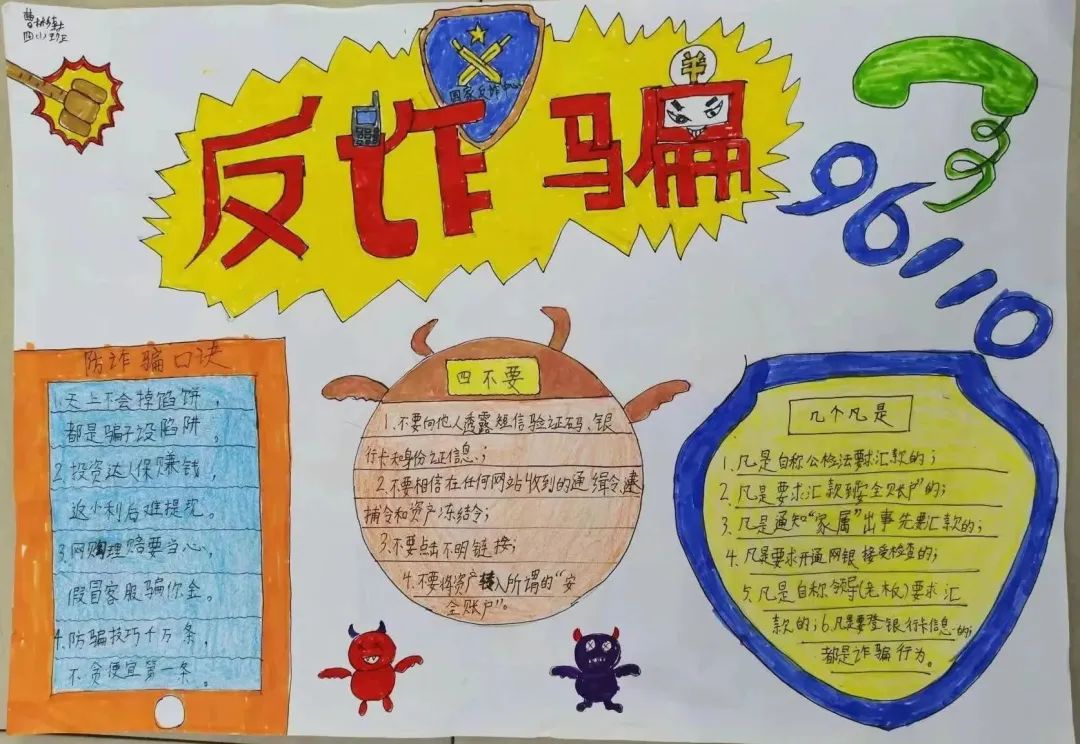 四(1)班
反诈骗
国家反诈中心
96110
防诈骗口诀
1.天上不会掉馅饼,
都是骗子设陷阱。
2.投资达人保赚钱,
返小利后难提现。
3.网购理赔要当心,
假冒客服骗你金。
4.防骗技巧千万条,
不贪便宜第一条。
四不要
1.不要向他人透露短信验证码、银
行卡和身份证信息;
2.不要相信在任何网站收到的通缉令、逮
捕令和资产冻结令;
3.不要点击不明链接;
4.不要将资产转入所谓的“安
全账户”。
几个凡是
1.凡是自称公检法要求汇款的;
2.凡是要求汇款到“安全账户”的;
3.凡是通知“家属”出事先要汇款的;
4.凡是要求开通网银接受检查的;
5.凡是自称领导(老板)要求汇
款的;6.凡是要登银行卡信息的;
都是诈骗行为。